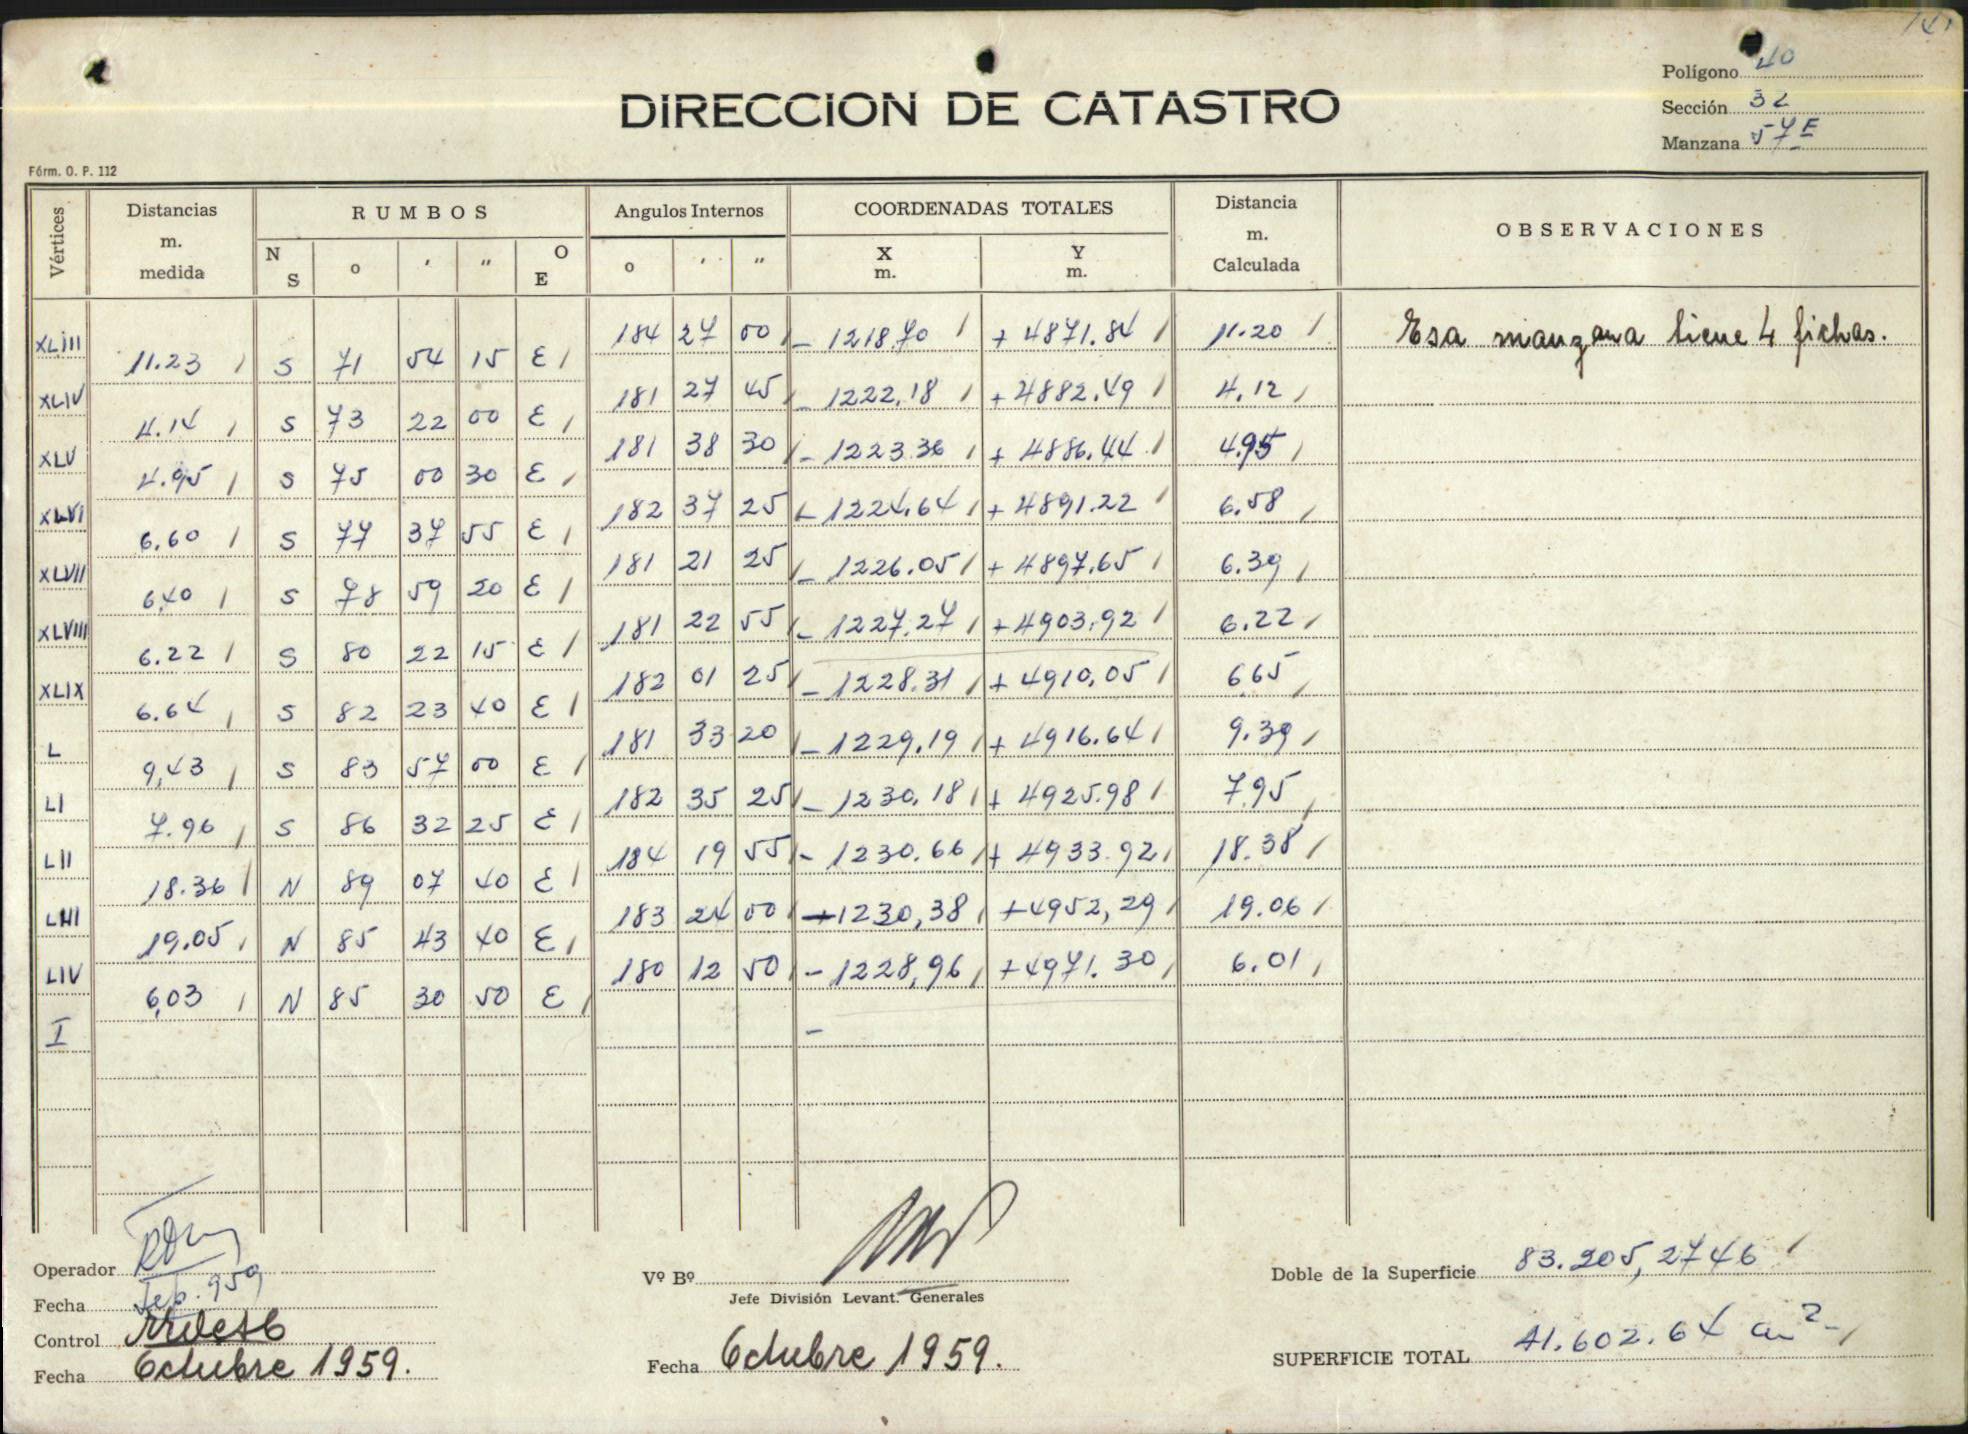 141
Polígono 40
DIRECCION DE CATASTRO
Sección 32
Manzana 57E
Fórm. O. P. 112
Vértices Distancias m. medida RUMBOS Angulos Internos COORDENADAS TOTALES Distancia m. Calculada OBSERVACIONES
N S o ' " O E o ' " X m. Y m.
XLIII 184 27 00 - 1218.70 + 4871.84 11.20 Esa manzana tiene 4 fichas.
11.23 S 71 54 15 E
XLIV 181 27 45 - 1222.18 + 4882.49 4.12
4.14 S 73 22 00 E
XLV 181 38 30 - 1223.36 + 4886.44 4.95
4.95 S 75 00 30 E
XLVI 182 37 25 - 1224.64 + 4891.22 6.58
6.60 S 77 37 55 E
XLVII 181 21 25 - 1226.05 + 4897.65 6.39
6.40 S 78 59 20 E
XLVIII 181 22 55 - 1227.27 + 4903.92 6.22
6.22 S 80 22 15 E
XLIX 182 01 25 - 1228.31 + 4910.05 6.65
6.64 S 82 23 40 E
L 181 33 20 - 1229.19 + 4916.64 9.39
9,43 S 83 57 00 E
LI 182 35 25 - 1230.18 + 4925.98 7.95
7.96 S 86 32 25 E
LII 184 19 55 - 1230.66 + 4933.92 18.38
18.36 N 89 07 40 E
LIII 183 24 00 - 1230,38 + 4952,29 19.06
19.05 N 85 43 40 E
LIV 180 12 50 - 1228,96 + 4971.30 6.01
6,03 N 85 30 50 E
I -
Operador
Fecha Sep. 959
Control
Fecha Octubre 1959.
Vº Bº
Jefe División Levant. Generales
Fecha Octubre 1959.
Doble de la Superficie 83.205,2746
SUPERFICIE TOTAL 41.602.64 m2